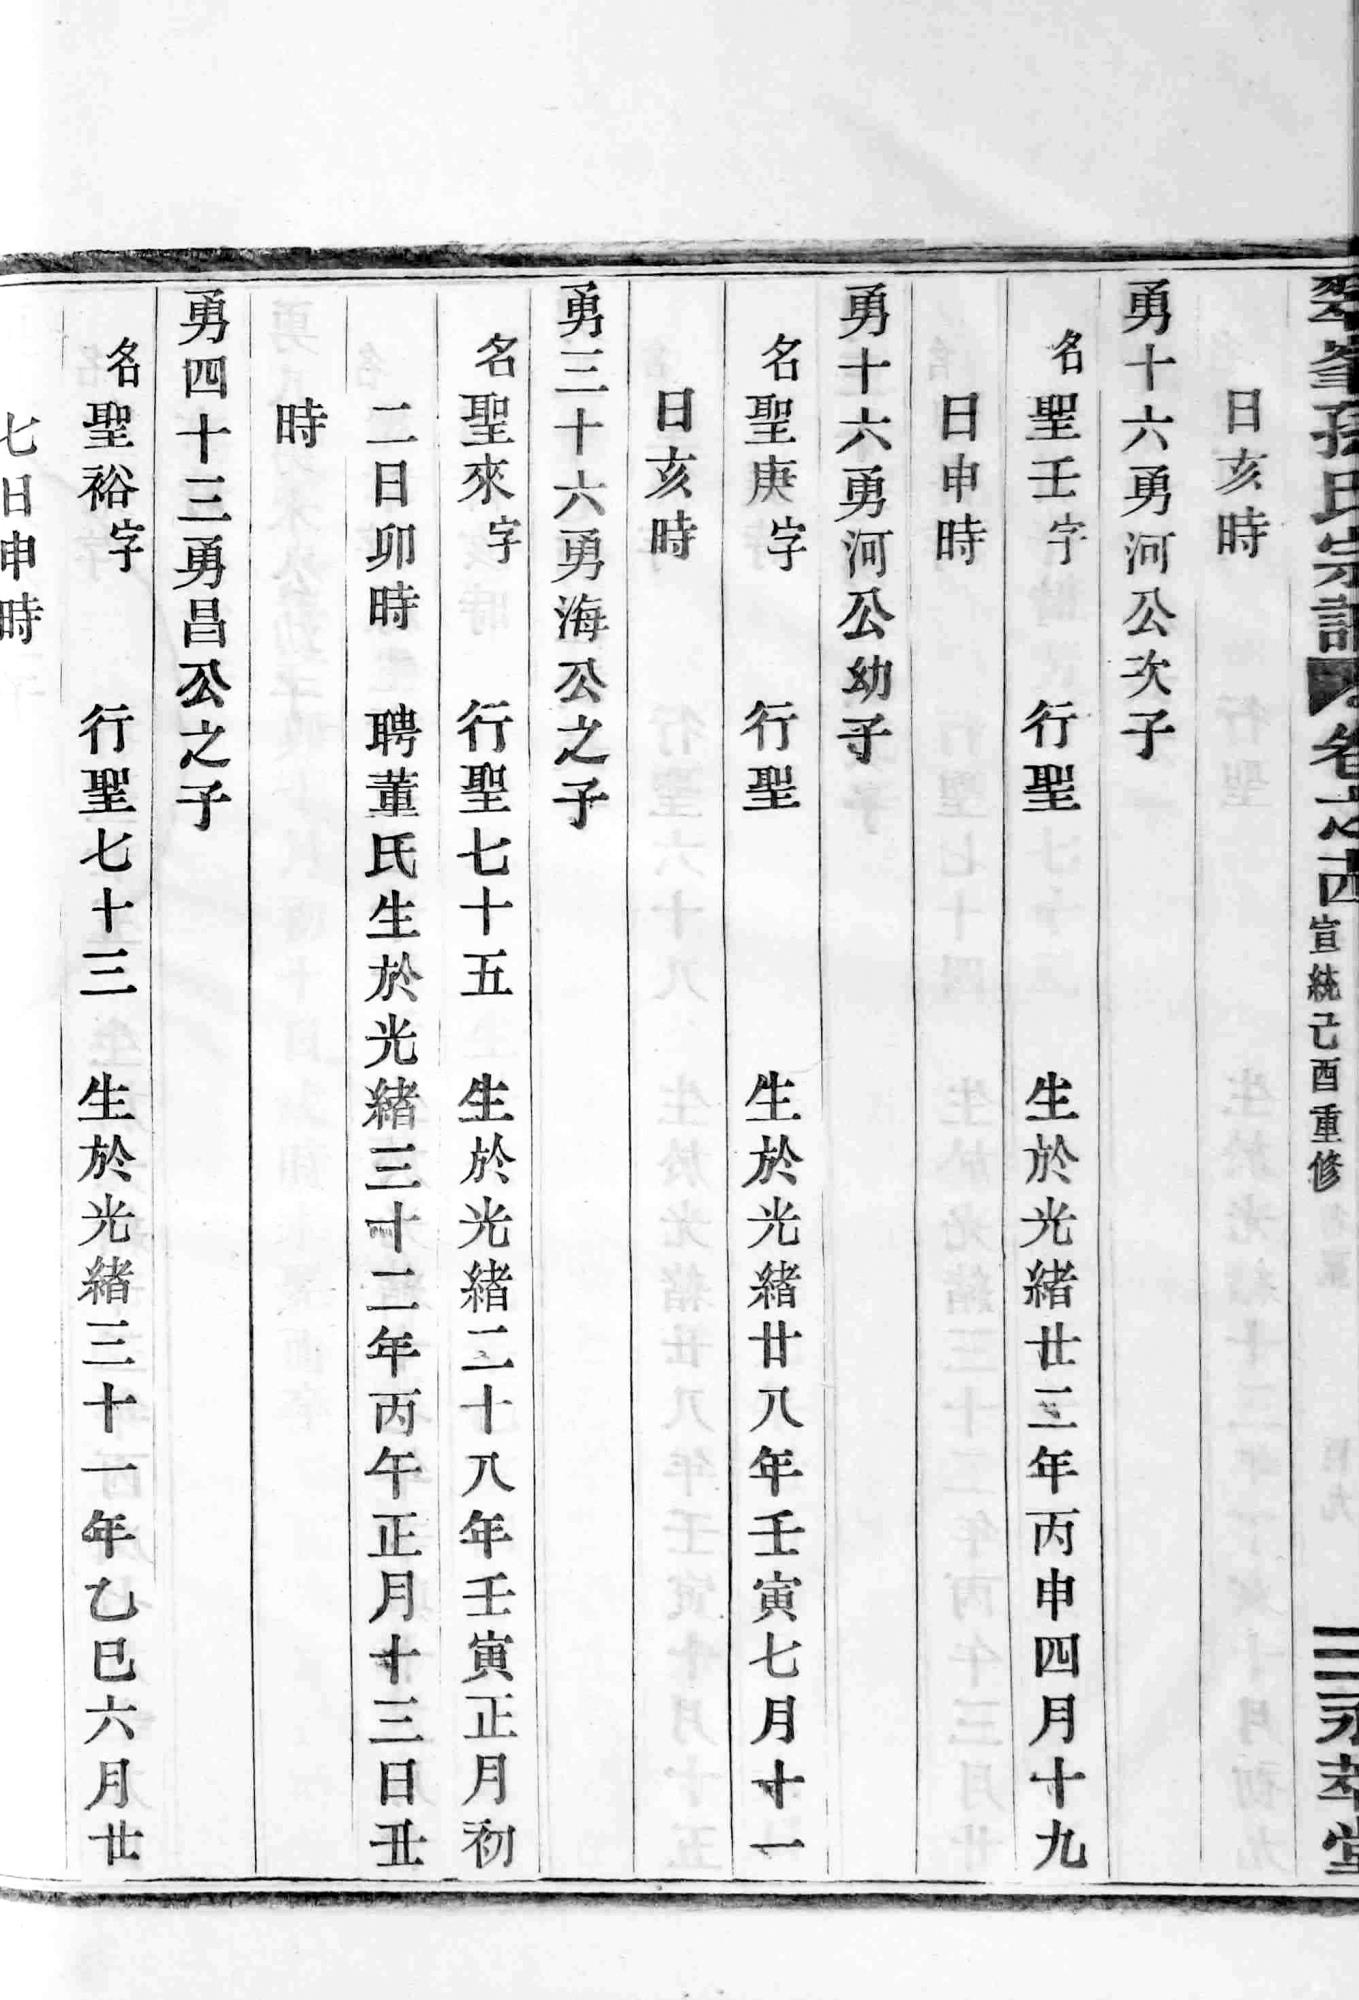 翠峯孫氏宗譜 卷之西 宣統己酉重修 三 永萃堂
日亥時
勇十六勇河公次子
名聖壬字 行聖 生於光緒廿三年丙申四月十九
日申時
勇十六勇河公幼子
名聖庚字 行聖 生於光緒廿八年壬寅七月十一
日亥時
勇三十六勇海公之子
名聖來字 行聖七十五 生於光緒二十八年壬寅正月初
二日卯時 聘董氏生於光緒三十二年丙午正月十三日丑
時
勇四十三勇昌公之子
名聖裕字 行聖七十三 生於光緒三十一年乙巳六月廿
七日申時